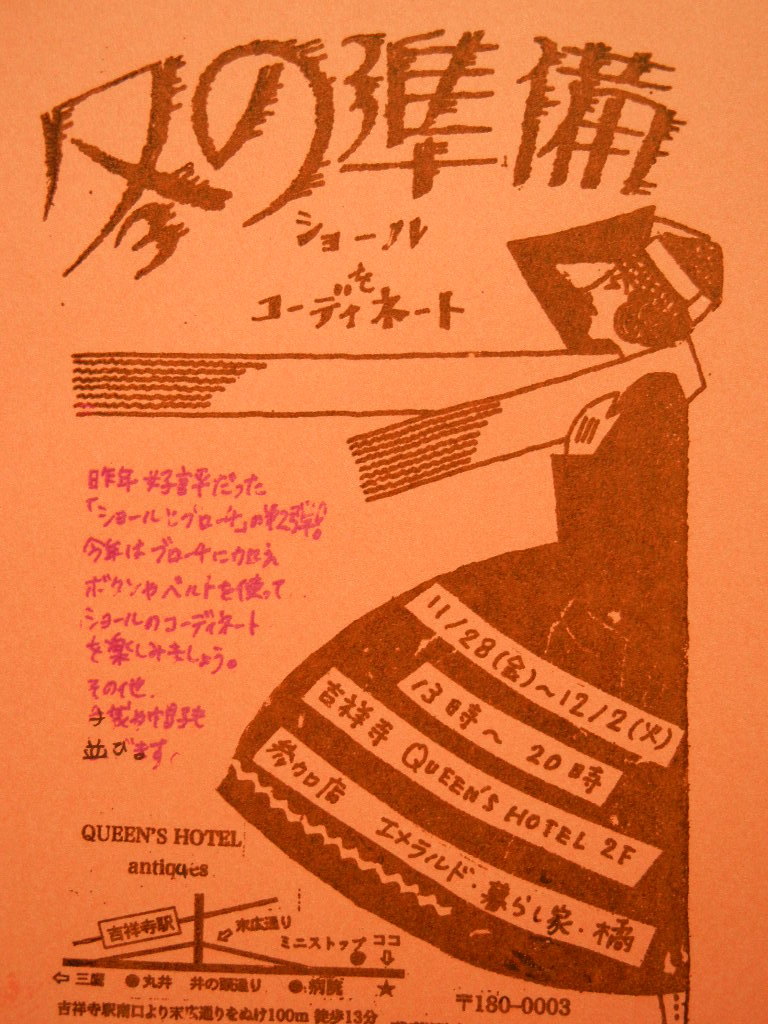 冬の準備
ショール
を
コーディネート
昨年好評だった
「ショールとブローチ」の第2弾!!
今年はブローチに加え
ボタンやベルトを使って
ショールのコーディネート
を楽しみましょう。
その他.
手袋や帽子も
並びます。
11/28(金)〜12/2(火)
13時〜20時
吉祥寺 QUEEN'S HOTEL 2F
参加店 エメラルド・暮らし家・橘
QUEEN'S HOTEL
antiques
吉祥寺駅
末広通り
ミニストップ ココ
⇦三鷹 ●丸井 井の頭通り ●病院 ★
吉祥寺駅南口より末広通りをぬけ100m 徒歩13分
〒180-0003